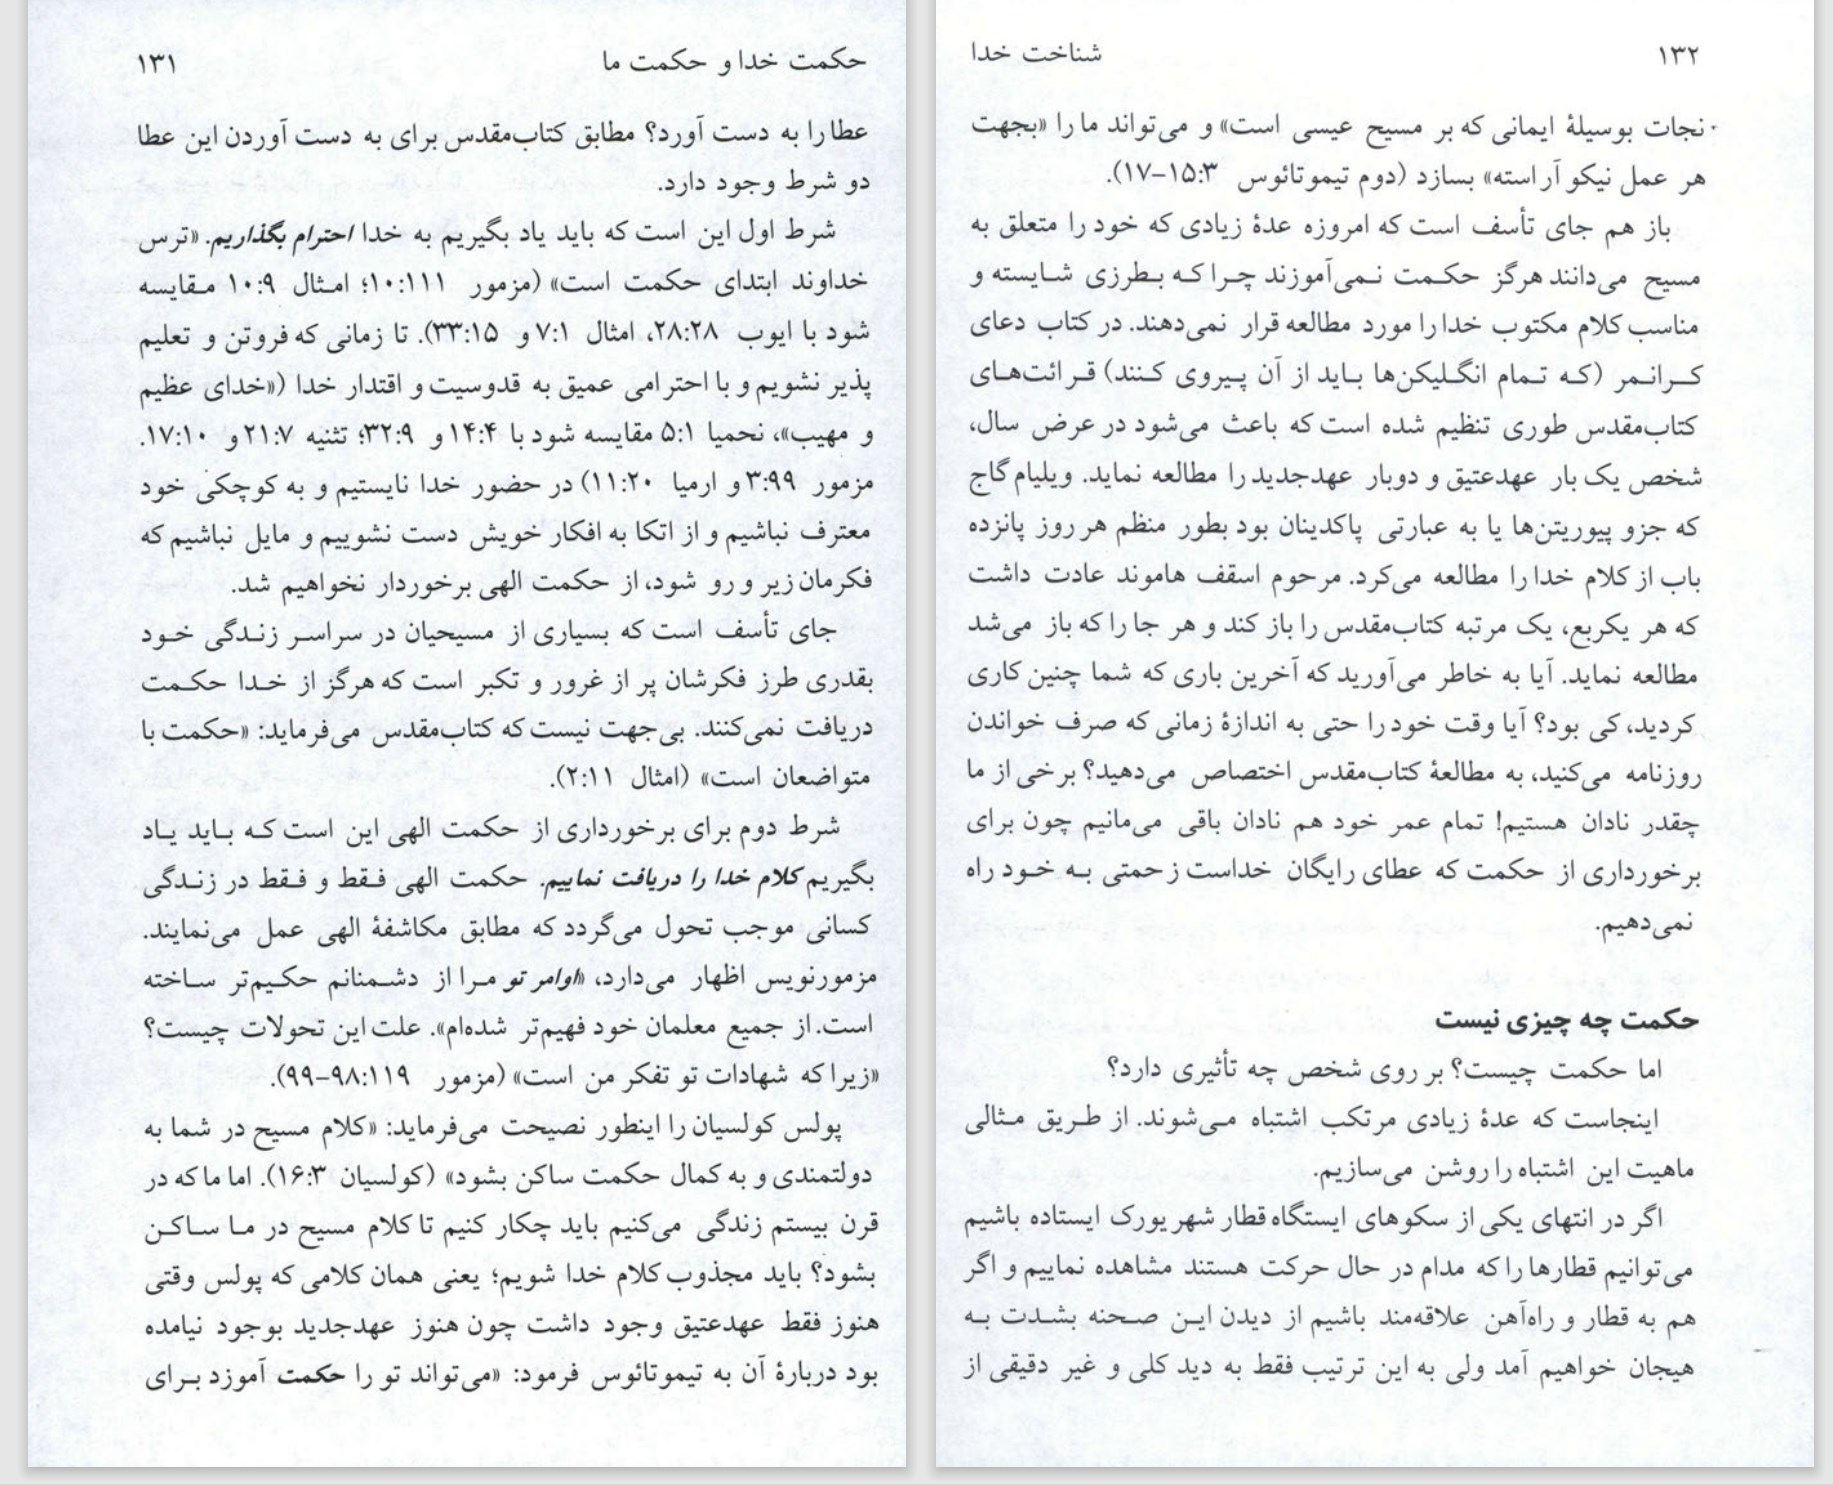 حکمت خدا و حکمت ما ۱۳۱
عطا را به دست آورد؟ مطابق کتاب‌مقدس برای به دست آوردن این عطا
دو شرط وجود دارد.
شرط اول این است که باید یاد بگیریم به خدا احترام بگذاریم. «ترس
خداوند ابتدای حکمت است» (مزمور ۱۰:۱۱۱؛ امثال ۱۰:۹ مقایسه
شود با ایوب ۲۸:۲۸، امثال ۷:۱ و ۳۳:۱۵). تا زمانی که فروتن و تعلیم
پذیر نشویم و با احترامی عمیق به قدوسیت و اقتدار خدا («خدای عظیم
و مهیب»، نحمیا ۵:۱ مقایسه شود با ۱۴:۴ و ۳۲:۹؛ تثنیه ۲۱:۷ و ۱۷:۱۰.
مزمور ۳:۹۹ و ارمیا ۱۱:۲۰) در حضور خدا نایستیم و به کوچکی خود
معترف نباشیم و از اتکا به افکار خویش دست نشوییم و مایل نباشیم که
فکرمان زیر و رو شود، از حکمت الهی برخوردار نخواهیم شد.
جای تأسف است که بسیاری از مسیحیان در سراسر زندگی خود
بقدری طرز فکرشان پر از غرور و تکبر است که هرگز از خدا حکمت
دریافت نمی‌کنند. بی‌جهت نیست که کتاب‌مقدس می‌فرماید: «حکمت با
متواضعان است» (امثال ۲:۱۱).
شرط دوم برای برخورداری از حکمت الهی این است که باید یاد
بگیریم کلام خدا را دریافت نماییم. حکمت الهی فقط و فقط در زندگی
کسانی موجب تحول می‌گردد که مطابق مکاشفهٔ الهی عمل می‌نمایند.
مزمورنویس اظهار می‌دارد، «اوامر تو مرا از دشمنانم حکیم‌تر ساخته
است. از جمیع معلمان خود فهیم‌تر شده‌ام». علت این تحولات چیست؟
«زیرا که شهادات تو تفکر من است» (مزمور ۹۸:۱۱۹-۹۹).
پولس کولسیان را اینطور نصیحت می‌فرماید: «کلام مسیح در شما به
دولتمندی و به کمال حکمت ساکن بشود» (کولسیان ۱۶:۳). اما ما که در
قرن بیستم زندگی می‌کنیم باید چکار کنیم تا کلام مسیح در ما ساکن
بشود؟ باید مجذوب کلام خدا شویم؛ یعنی همان کلامی که پولس وقتی
هنوز فقط عهدعتیق وجود داشت چون هنوز عهدجدید بوجود نیامده
بود دربارهٔ آن به تیموتائوس فرمود: «می‌تواند تو را حکمت آموزد برای
۱۳۲ شناخت خدا
نجات بوسیلهٔ ایمانی که بر مسیح عیسی است» و می‌تواند ما را «بجهت
هر عمل نیکو آراسته» بسازد (دوم تیموتائوس ۱۵:۳-۱۷).
باز هم جای تأسف است که امروزه عدهٔ زیادی که خود را متعلق به
مسیح می‌دانند هرگز حکمت نمی‌آموزند چرا که بطرزی شایسته و
مناسب کلام مکتوب خدا را مورد مطالعه قرار نمی‌دهند. در کتاب دعای
کرانمر (که تمام انگلیکن‌ها باید از آن پیروی کنند) قرائت‌های
کتاب‌مقدس طوری تنظیم شده است که باعث می‌شود در عرض سال،
شخص یک بار عهدعتیق و دوبار عهدجدید را مطالعه نماید. ویلیام گاج
که جزو پیوریتن‌ها یا به عبارتی پاکدینان بود بطور منظم هر روز پانزده
باب از کلام خدا را مطالعه می‌کرد. مرحوم اسقف هاموند عادت داشت
که هر یکربع، یک مرتبه کتاب‌مقدس را باز کند و هر جا را که باز می‌شد
مطالعه نماید. آیا به خاطر می‌آورید که آخرین باری که شما چنین کاری
کردید، کی بود؟ آیا وقت خود را حتی به اندازهٔ زمانی که صرف خواندن
روزنامه می‌کنید، به مطالعهٔ کتاب‌مقدس اختصاص می‌دهید؟ برخی از ما
چقدر نادان هستیم! تمام عمر خود هم نادان باقی می‌مانیم چون برای
برخورداری از حکمت که عطای رایگان خداست زحمتی به خود راه
نمی‌دهیم.
حکمت چه چیزی نیست
اما حکمت چیست؟ بر روی شخص چه تأثیری دارد؟
اینجاست که عدهٔ زیادی مرتکب اشتباه می‌شوند. از طریق مثالی
ماهیت این اشتباه را روشن می‌سازیم.
اگر در انتهای یکی از سکوهای ایستگاه قطار شهر یورک ایستاده باشیم
می‌توانیم قطارها را که مدام در حال حرکت هستند مشاهده نماییم و اگر
هم به قطار و راه‌آهن علاقه‌مند باشیم از دیدن این صحنه بشدت به
هیجان خواهیم آمد ولی به این ترتیب فقط به دید کلی و غیر دقیقی از